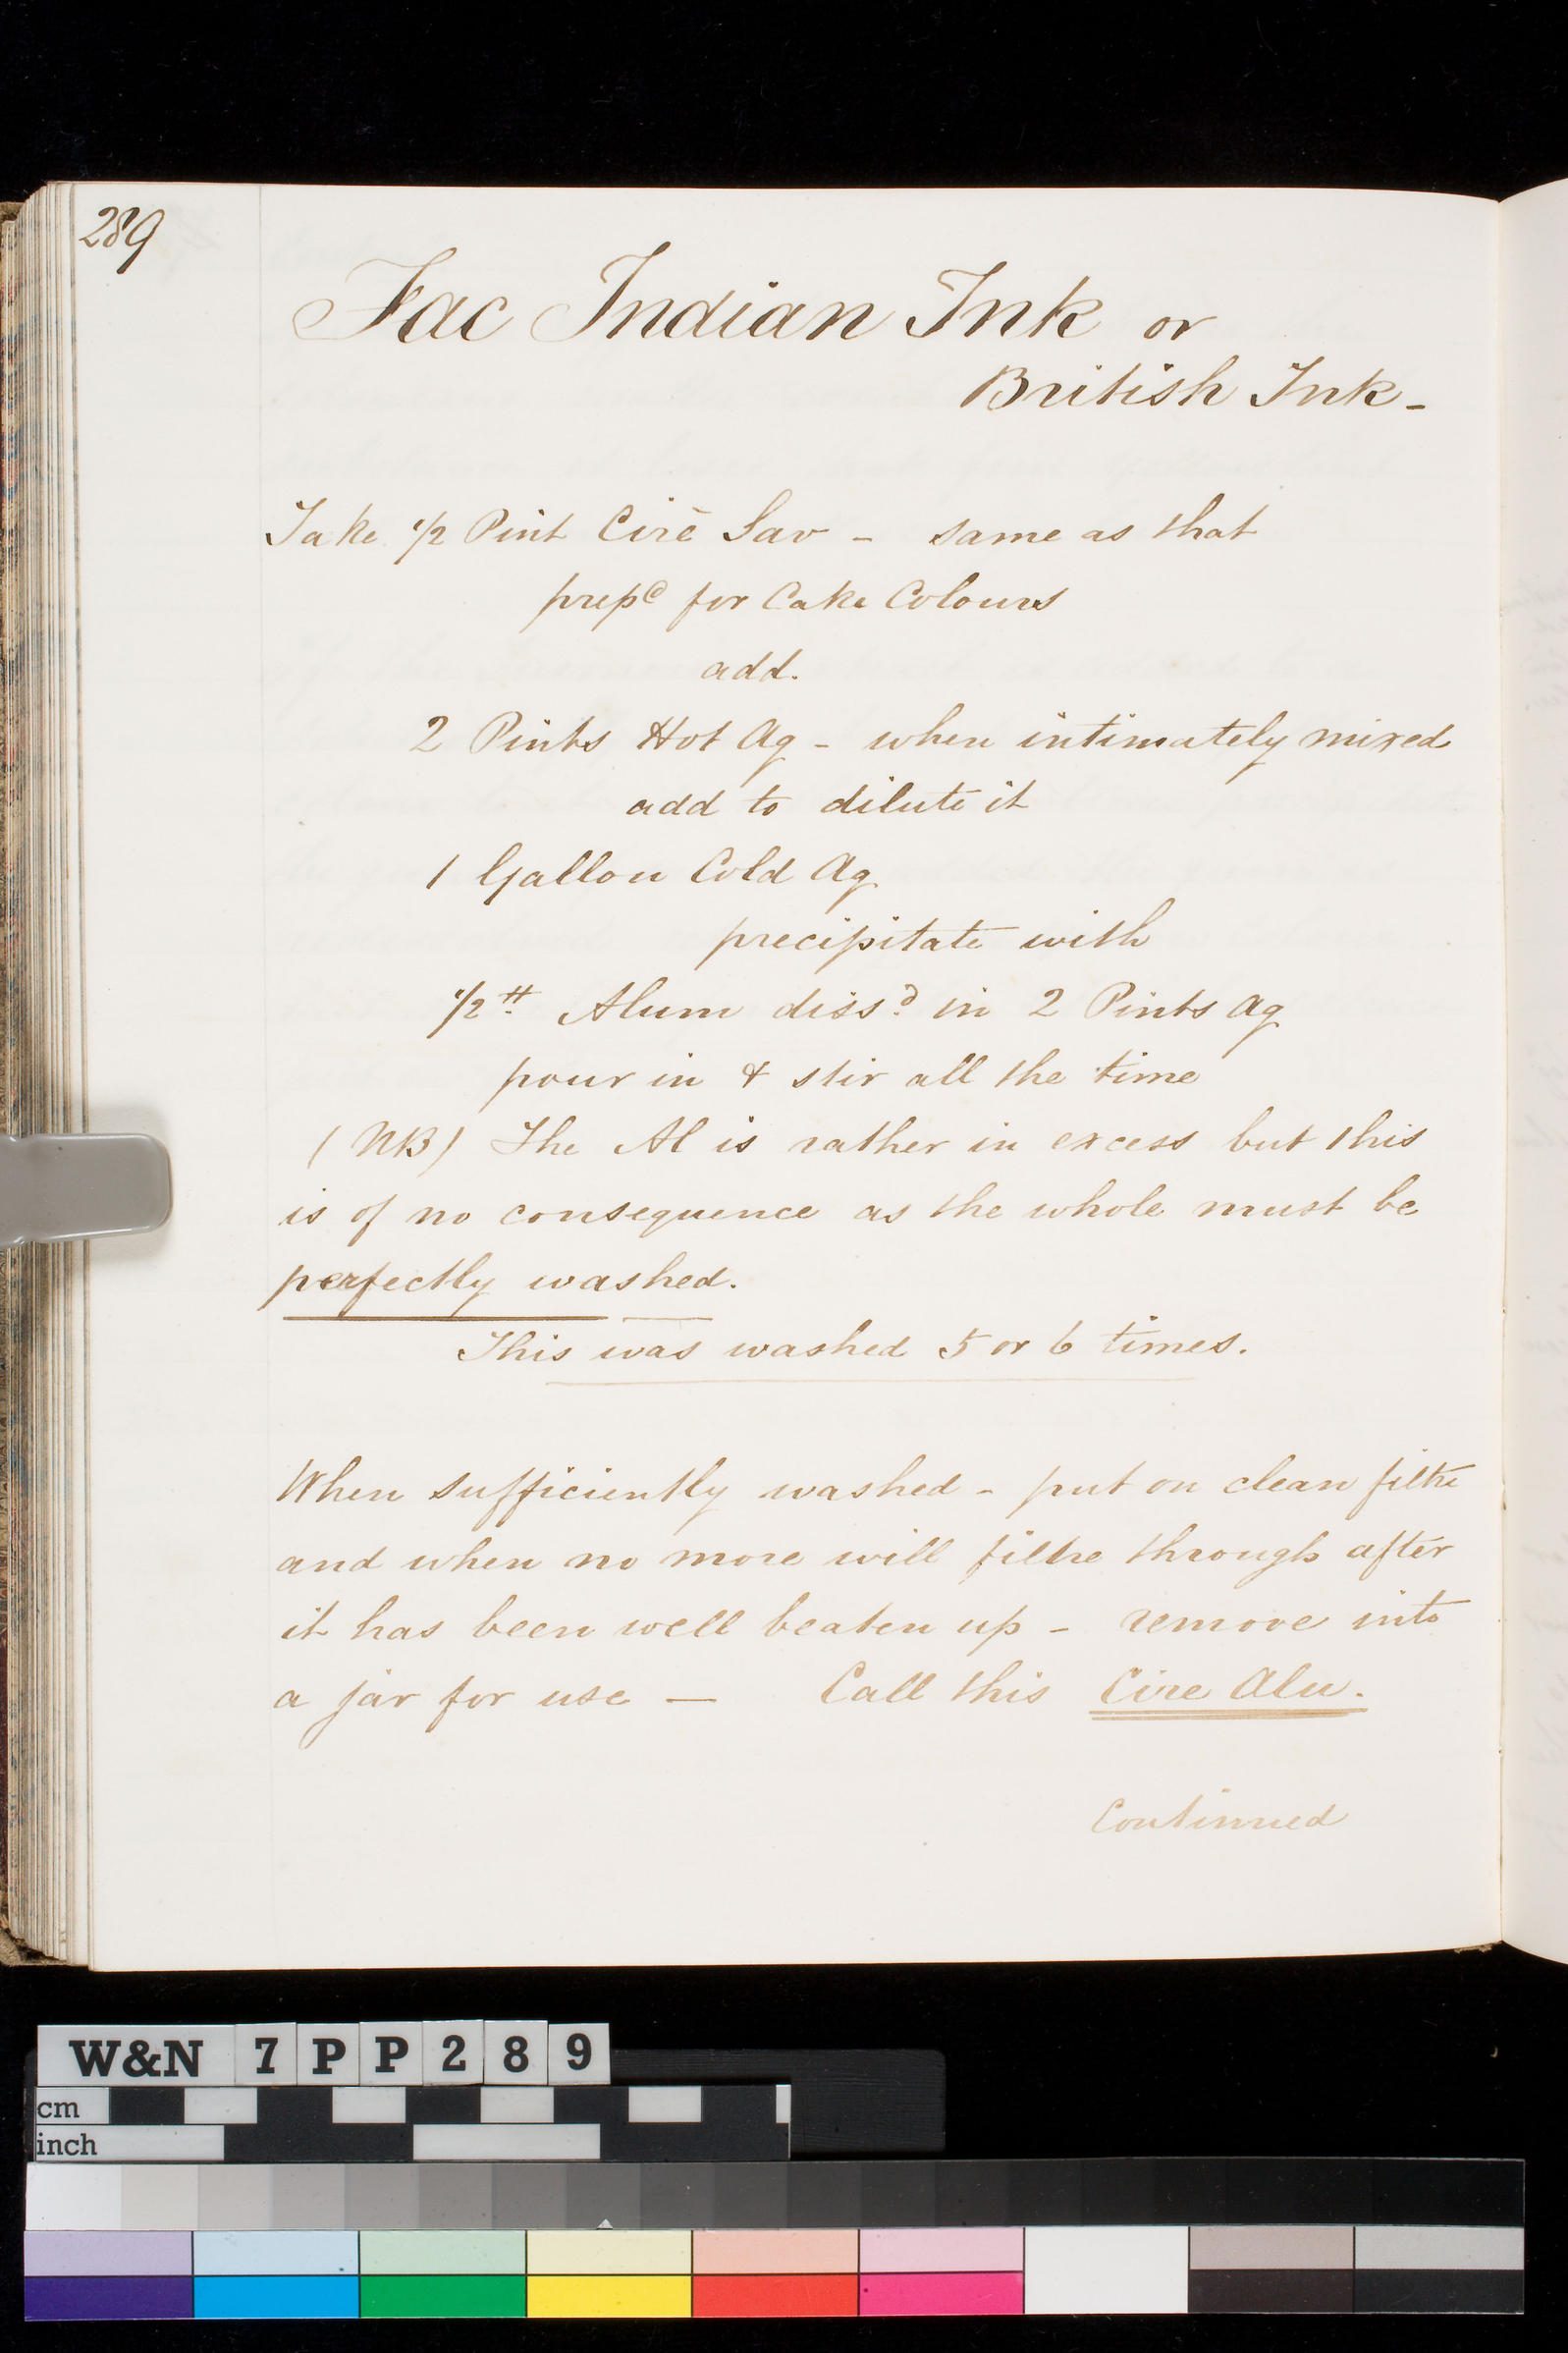 289
Fac Indian Ink or
British Ink -
Take 1/2 Pint Cirē Sav - same as that
prepd for Cake Colours
add.
2 Pints Hot Aq - when intimately mixed
add to dilute it
1 Gallon Cold Aq
precipitate with
1/2 ℔ Alum dissd in 2 Pints Aq
pour in & stir all the time
(NB) The Al is rather in excess but this
is of no consequence as the whole must be
perfectly washed.
This was washed 5 or 6 times.
When sufficiently washed - put on clean filtre
and when no more will filtre through after
it has been well beaten up - remove into
a jar for use — Call this Cire Alu.
Continued
W&N 7PP289
cm
inch